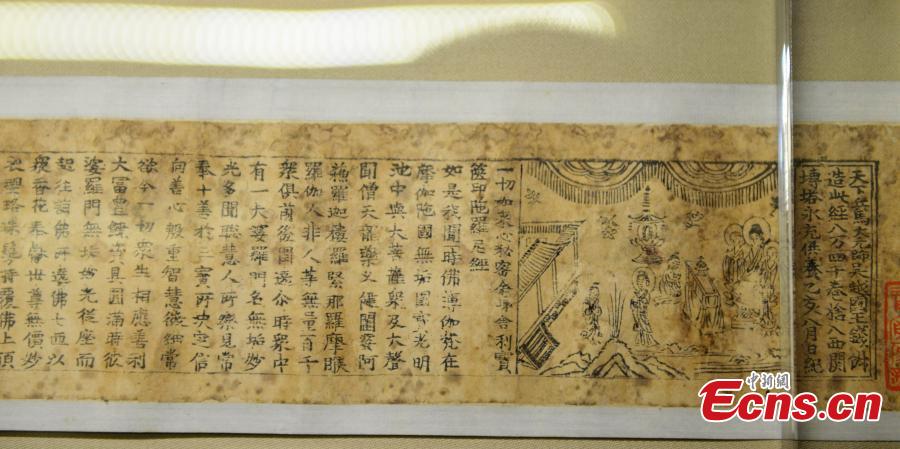 天下兵馬大元帥吳越國王錢俶
造此經八万四千卷捨入西關
塼塔永充供養乙亥八月日紀
一切如來心秘密全身舍利寶
篋印陀羅尼經
如是我聞一時佛薄伽梵在
摩伽陀國無垢園寶光明
池中與大菩薩衆及大聲
聞僧天龍藥叉健闥婆阿
蘇羅迦樓羅緊那羅摩睺
羅伽人非人等無量百千
衆俱前後圍遶尒時衆中
有一大婆羅門名無垢妙
光多聞聰慧人所樂見常
奉十善於三寶所決定信
向善心殷重智慧微細常
欲令一切衆生相應善利
大富豐饒資具圓滿時彼
婆羅門無垢妙光從座而
起往詣佛所遶佛七匝以
衆香花奉獻世尊無價妙
衣瓔珞珠鬘持覆佛上頂
中新網
Ecns.cn